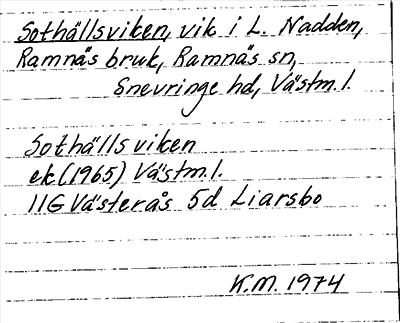 Sothällsviken, vik i L. Nadden,
Ramnäs bruk, Ramnäs sn,
Snevringe hd, Västm.l.
Sothällsviken
ek(1965) Västm.l.
11G Västerås 5d Liarsbo
K.M. 1974